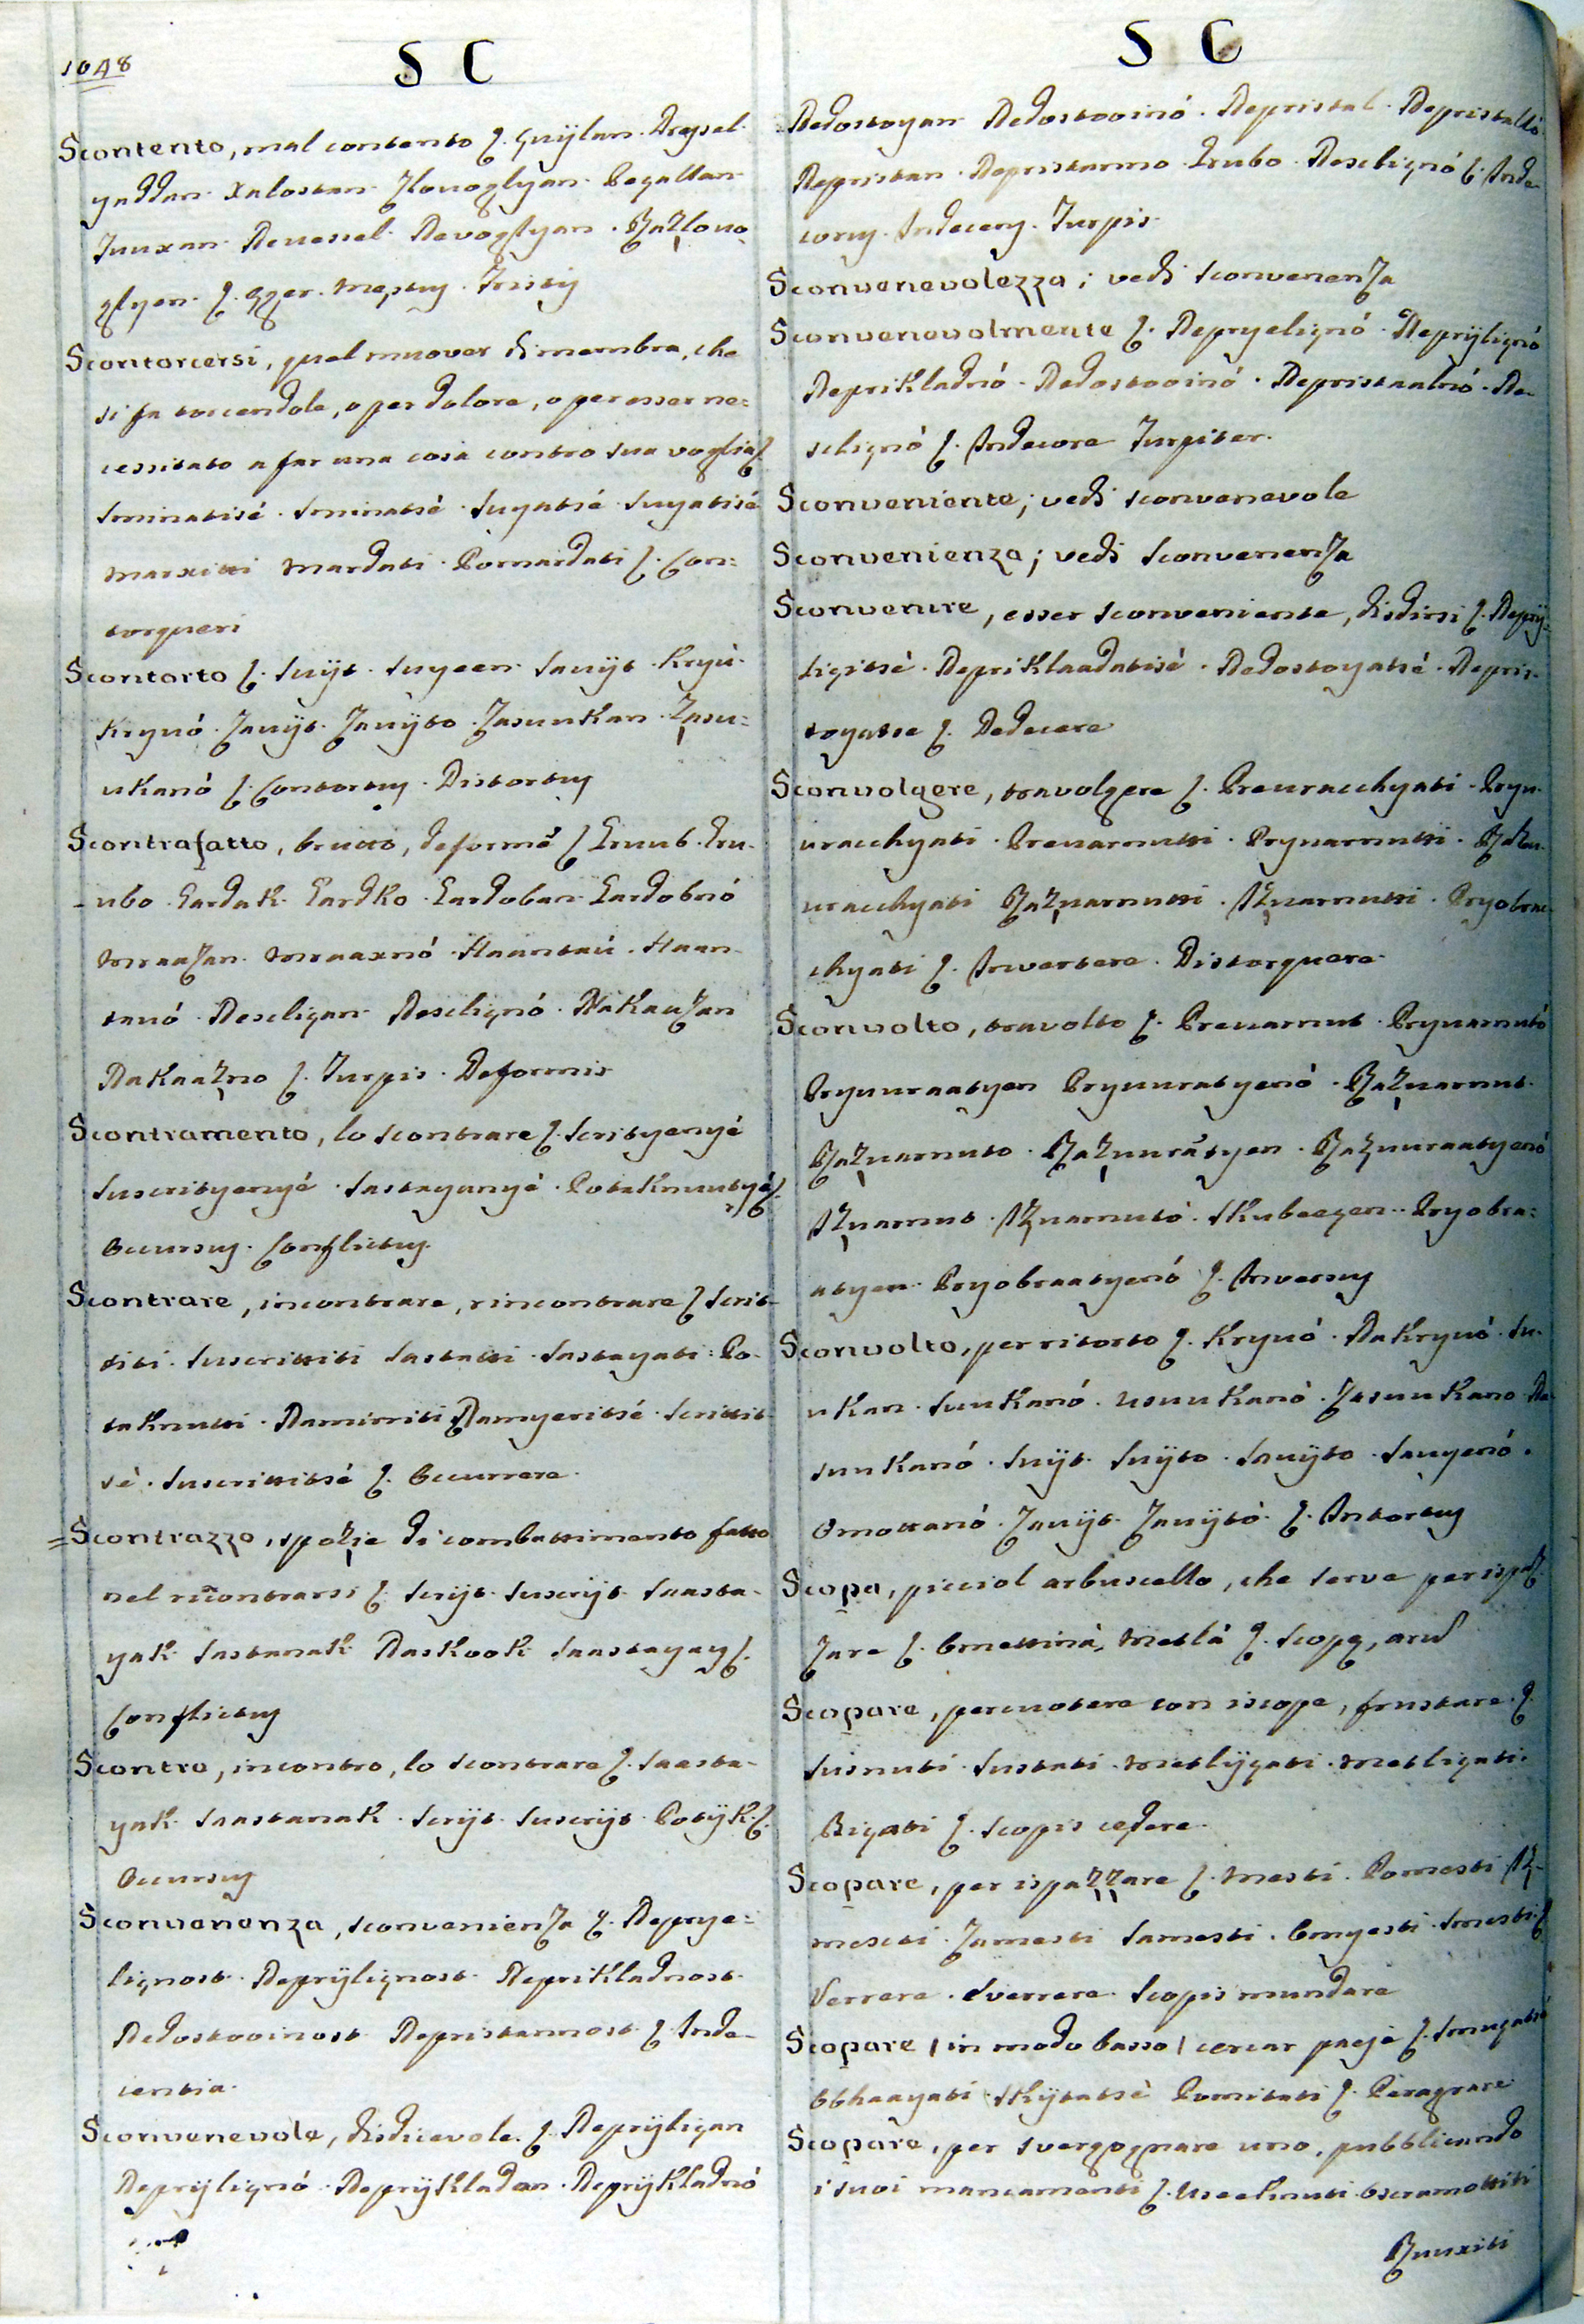 1048
S C
Scontento, mal contento ʃ. Çuÿlan. Dresel.
yaddan. Xalostan. Zlovoglyan. Pegallan.
Tuuxan. Nevessel. Nevoglyan. Razlovo
glyen. ʃ. Æger. Mestus. Tristis
Scontorcersi, quel muover di membra, che
si fa torcendole, o per dolore, o per esser ne:
cessitato a far una cosa contro sua voglia ʃ.
Sminatisé. Sminatsé. Suyatsé. Suyatisé
Marxitti Mardati. Pomardati ʃ. Con:
torqueri
Scontorto ʃ. Suÿt. Suyeen. Savÿt. Kryú.
Kryvó. Zavÿt. Zavÿto. Zasuukan. Zasu:
ukanó ʃ. Contortus. Distortus
Scontrafatto, brutto, deforme ʃ Gruub. Gru.
ubo. Gardak. Gardko. Gardoban. Gardobnó
Mraazan. Mraaxnó. Haantaú. Haan.
tavó. Neseligan. Neselignó. Nakaazan
Nakaazno ʃ. Turpis. Deformis
Scontramento, lo scontrare ʃ. Scrityenyé
Suscrityenyé. Sastayanyé. Potaknutyé ʃ.
Occursus. Conflictus.
Scontrare, incontrare, rincontrare ʃ Scrit-
titi. Suscrittiti Sastatti. Sastayati. Po-
taknutti. Namirriti Namyeritsé. Scrittit
sé. Suscrittitsé ʃ. Occurrere.
=Scontrazzo, spezie di combattimento fatto
nel rincontrarsi ʃ. Scrÿt. Suscrÿt. Saasta-
yak. Sastanak. Naskook. Saastayay ʃ.
Conflictus
Scontro, incontro, lo scontrare ʃ. Saasta-
yak. Saastanak. Scrÿt. Suscrÿt. Potÿk. ʃ.
Occursus
Sconvenenza, sconvenienza ʃ. Neprye:
lignost. Neprÿlignost. Neprikladnost.
Nedostooinost. Nepristannost ʃ. Inde-
centia.
Sconvenevole, disdicevole. ʃ. Neprÿligan
Neprÿlignó. Neprÿkladan. Neprÿkladnó
S C
Nedostoyan Nedostooinó. Nepristal. Nepristalló
Nepristan. Nepristanno. Grubo. Neselignó ʃ. Inde-
corus. Indecens. Turpis.
Sconvenevolezza; vedi sconvenenza
Sconvenevolmente ʃ. Nepryelignó. Neprÿlignó
Neprikladnó. Nedostooinó. Nepristaalnó. Ne-
selignó ʃ. Indecore Turpiter.
Sconveniente; vedi sconvenevole
Sconvenienza; vedi sconvenenza
Sconvenire, esser sconveniente, disdirsi ʃ. Neprÿ:
ligitsé. Nepriklaadatisé. Nedostoyatsé. Nepris-
toyatse ʃ. Dedecere
Sconvolgere, travolgere ʃ. Prevracchyati. Pryu.
uracchyati. Prevarnutti. Pryvarnutti. Razu-
uracchyati Razvarnutti. Izvarnutti. Pryobrac
chyati ʃ. Invertere. Distorquere.
Sconvolto, travolto ʃ. Prevarnut. Pryvarnutó
Pryuuraatyen Pryuuratyenó. Razvarnut.
Razvarnuto. Razuuratyen. Razuuraatyenó
Izvarnut. Izvarnutó. Skubeegen. Pryobra:
atyen. Pryobraatyenó ʃ. Inversus
Sconvolto, per ritorto ʃ. Kryvó. Nakryvó. Su-
ukan. Suukanó. Usuukanó. Zasuukano. Na
suukanó. Suÿt. Suÿto. Savÿto. Savyenó.
Omottanó. Zavÿt. Zavÿtó. ʃ. Intortus
Scopa, picciol arbuscello, che serve per ispaz
zare ʃ. Omettina, Metlá ʃ. Scopæ, arum
Scopare, percuotere con iscope, frustare. ʃ.
Susnuti. Sustati. Metlÿgati. Metligati.
Bigati ʃ. Scopis cædere.
Scopare, per ispazzare ʃ. Mesti. Pomesti Iz-
mesti. Zamesti Samesti. Omyesti. Smesti. ʃ
Verrere. Everrere. Scopis mundare
Scopare (in modo basso) cercar paesi ʃ. Smugatsé
Obhaayati. Skÿtatsé Pomitati ʃ. Peragrare
Scopare, per svergognare uno, pubblicando
i suoi mancamenti ʃ. Oscramottiti
Ruuxiti